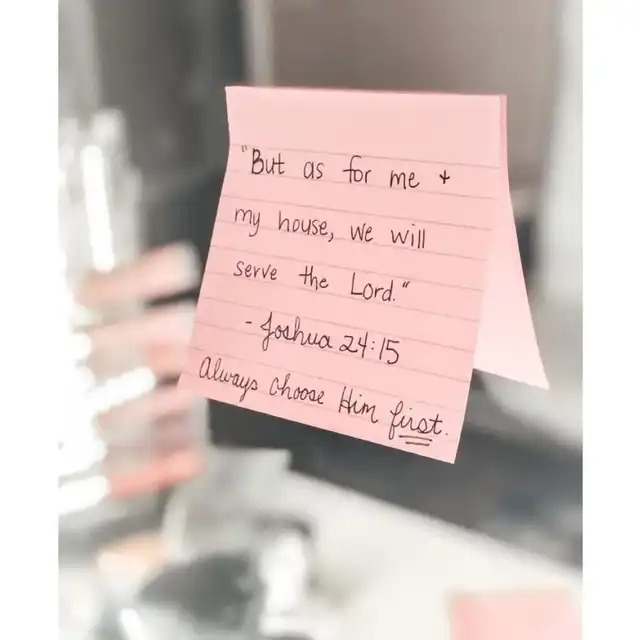 "But as for me +
my house, we will
serve the Lord."
- Joshua 24:15
Always choose Him first.